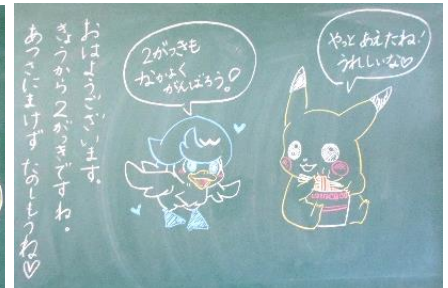 おはようございます。
きょうから2がっきですね。
あつさにまけず たのしもうね♡
2がっきも
なかよく
がんばろう!
やっと あえたね!
うれしいな♡